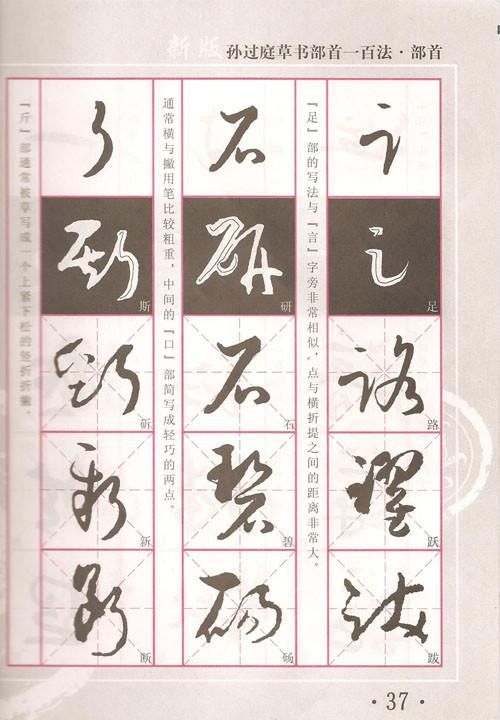 新版 孙过庭草书部首一百法·部首
足
路
跃
跋
『足』部的写法与『言』字旁非常相似，点与横折提之间的距离非常大。
研
石
碧
砀
通常横与撇用笔比较粗重，中间的『口』部简写成轻巧的两点。
斯
新
断
『斤』部通常被草写成一个上紧下松的竖折折撇。
·37·